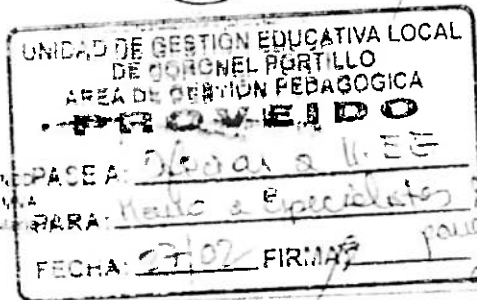 UNIDAD DE GESTIÓN EDUCATIVA LOCAL
DE CORONEL PORTILLO
AREA DE GESTIÓN PEDAGOGICA
PROVEIDO
PASE A: a II.EE
PARA: a Especialistas
FECHA: 27/02 FIRMA